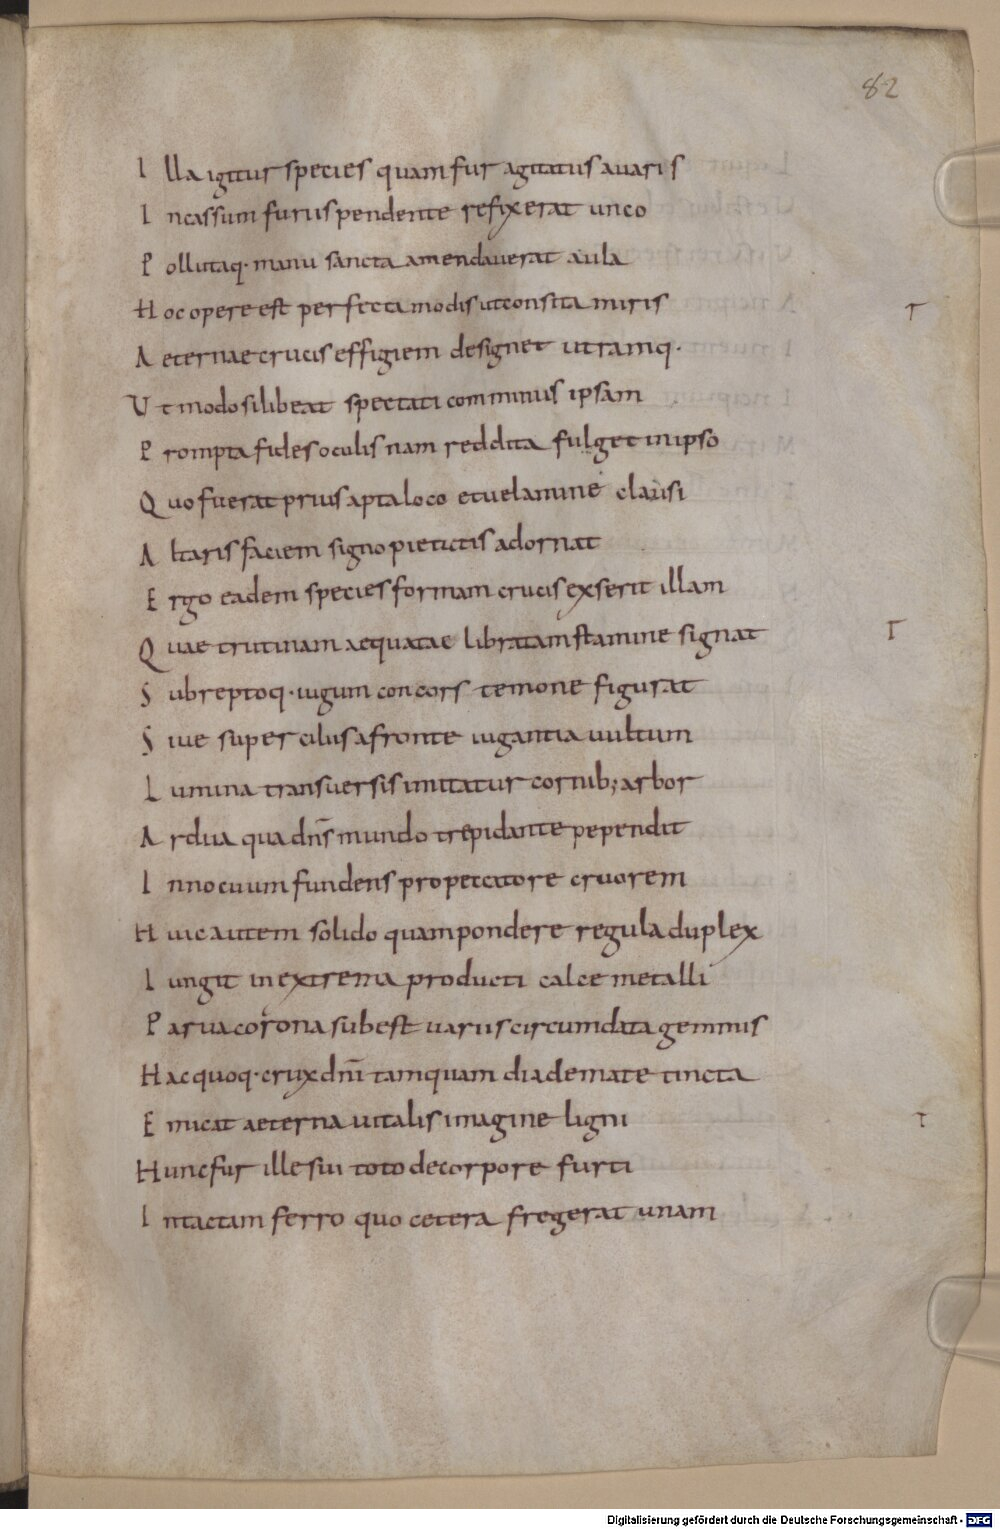 82
Illa igitur species quam fur agitatus auaris
Incassum furiis pendente refixerat unco
Pollutaq· manu sancta amendauerat aula
Hoc opere est perfecta modis ut consita miris
Aeternae crucis effigiem designet utramq·
Ut modo si libeat spectati comminus ipsam
Prompta fides oculis nam reddita fulget in ipso
Quo fuerat prius apta loco et uelamine clausi
Altaris faciem signo pietatis adornat
Ergo eadem species formam crucis exserit illam
Quae trutinam aequatae libratam stamine signat
Subreptoq· iugum concors temone figurat
Siue supercilus a fronte iugantia uultum
Lumina transuersis imitatur cornib; arbor
Ardua qua dn̄s mundo trepidante pependit
Innocuum fundens pro peccatore cruorem
Huic autem solido quam pondere regula duplex
Iungit in extrema producti calce metalli
Parua corona subest uariis circumdata gemmis
Hac quoq· crux dn̄i tamquam diademate tincta
Emicat aeterna uitalis imagine ligni
Hunc fur ille sui toto de corpore furti
Intactam ferro quo cetera fregerat unam
Digitalisierung gefördert durch die Deutsche Forschungsgemeinschaft - DFG